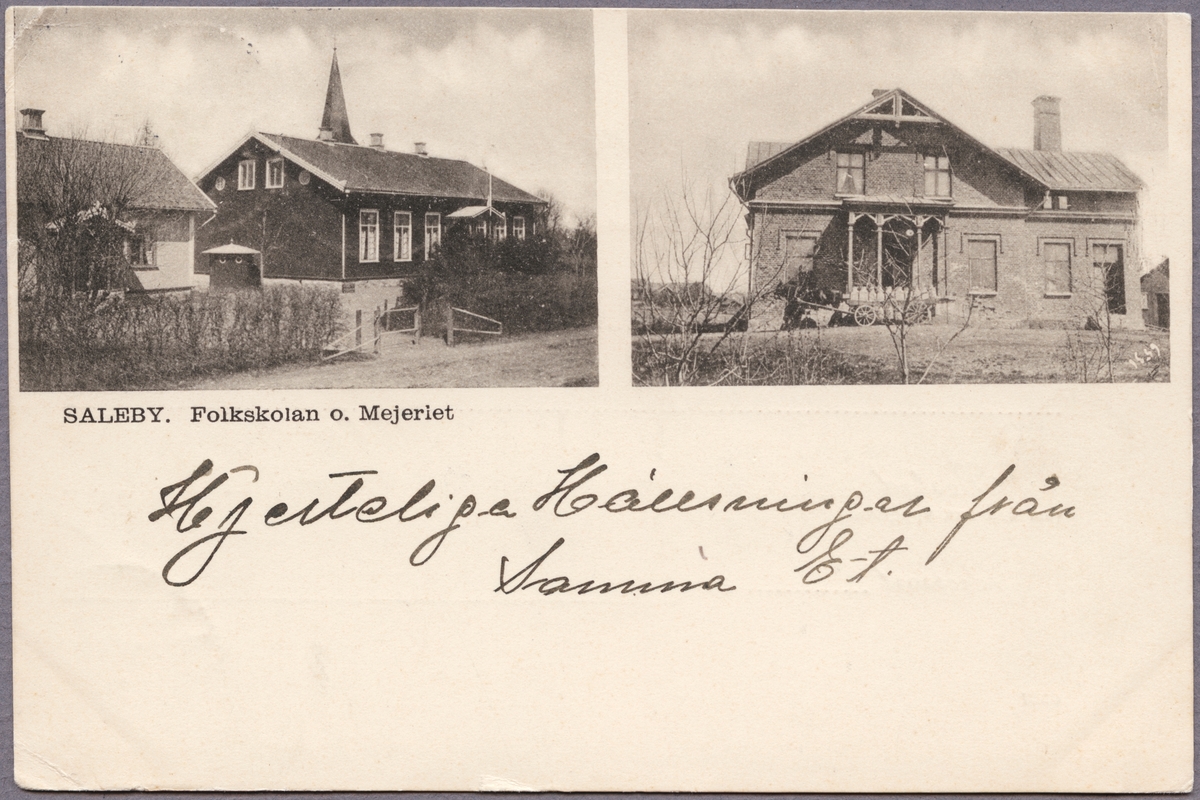 SALEBY. Folkskolan o. Mejeriet
Hjerteliga Hälsningar från
Samma E-t.